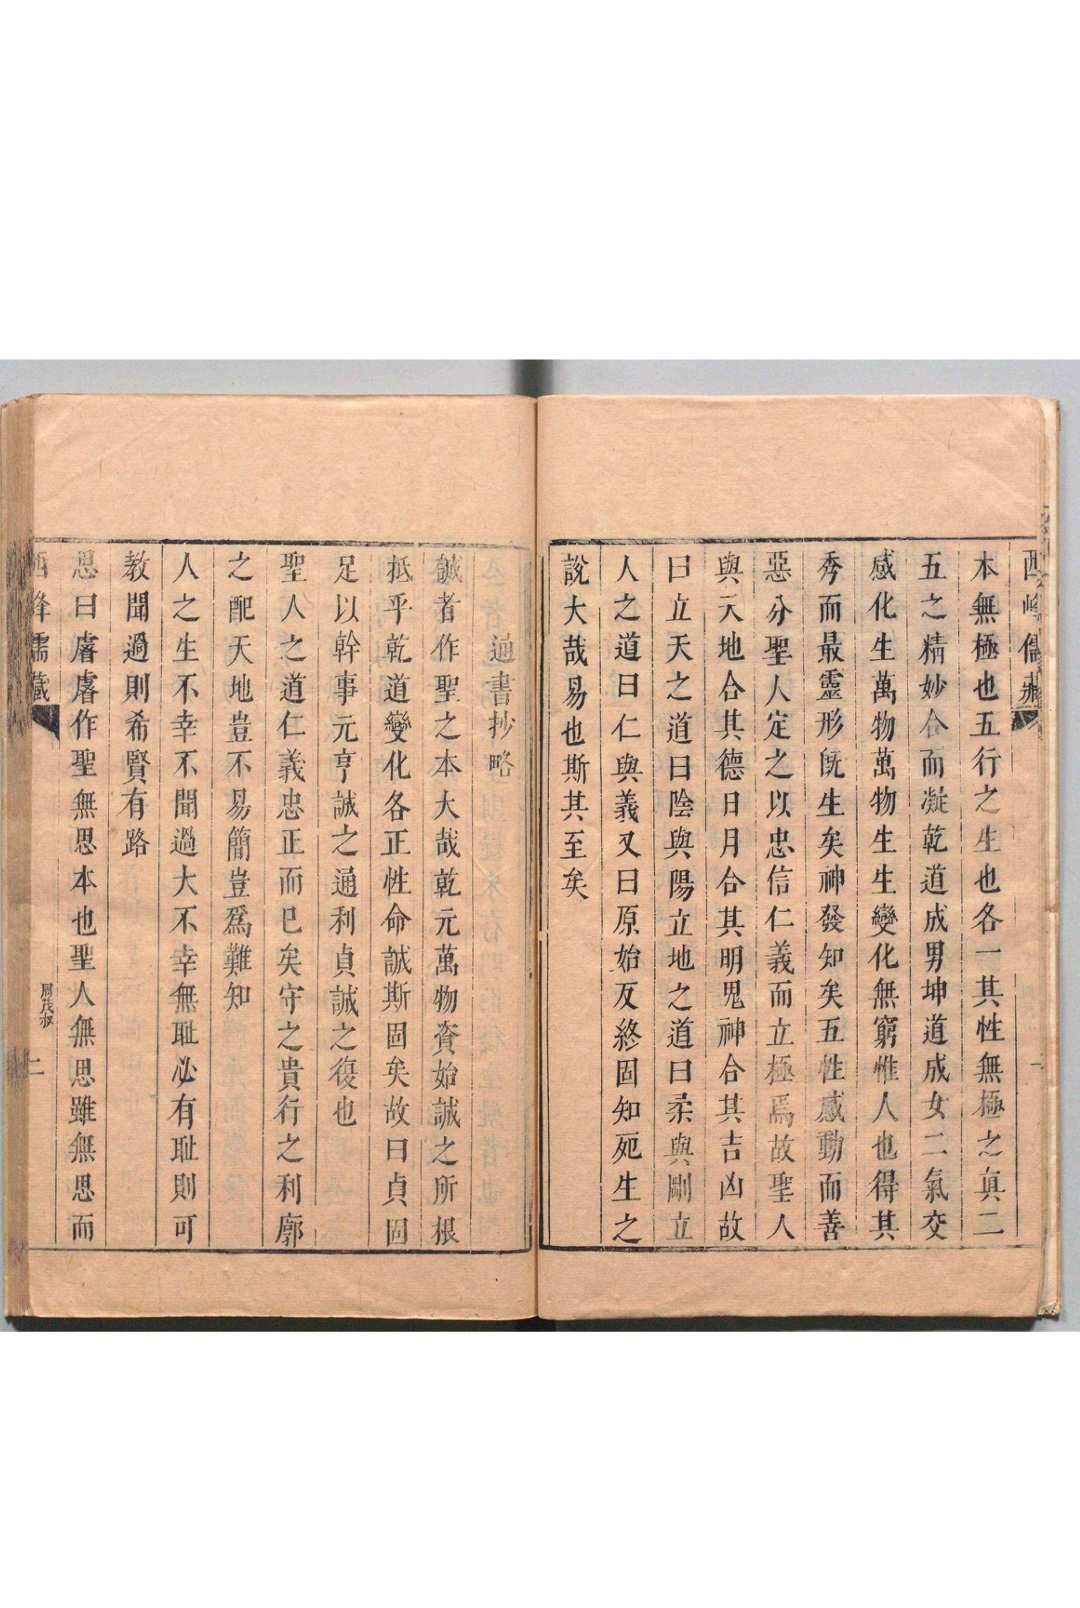 西峰儒藏
一
本無極也五行之生也各一其性無極之眞二
五之精妙合而凝乾道成男坤道成女二氣交
感化生萬物萬物生生變化無窮惟人也得其
秀而最靈形旣生矣神發知矣五性感動而善
惡分聖人定之以忠信仁義而立極焉故聖人
與天地合其德日月合其明鬼神合其吉凶故
曰立天之道曰陰與陽立地之道曰柔與剛立
人之道曰仁與義又曰原始反終固知死生之
說大哉易也斯其至矣
通書抄略
誠者作聖之本大哉乾元萬物資始誠之所根
抵乎乾道變化各正性命誠斯固矣故曰貞固
足以幹事元亨誠之通利貞誠之復也
聖人之道仁義忠正而已矣守之貴行之利廓
之配天地豈不易簡豈爲難知
人之生不幸不聞過大不幸無耻必有耻則可
教聞過則希賢有路
思曰睿睿作聖無思本也聖人無思雖無思而
西峰儒藏
周茂叔
二